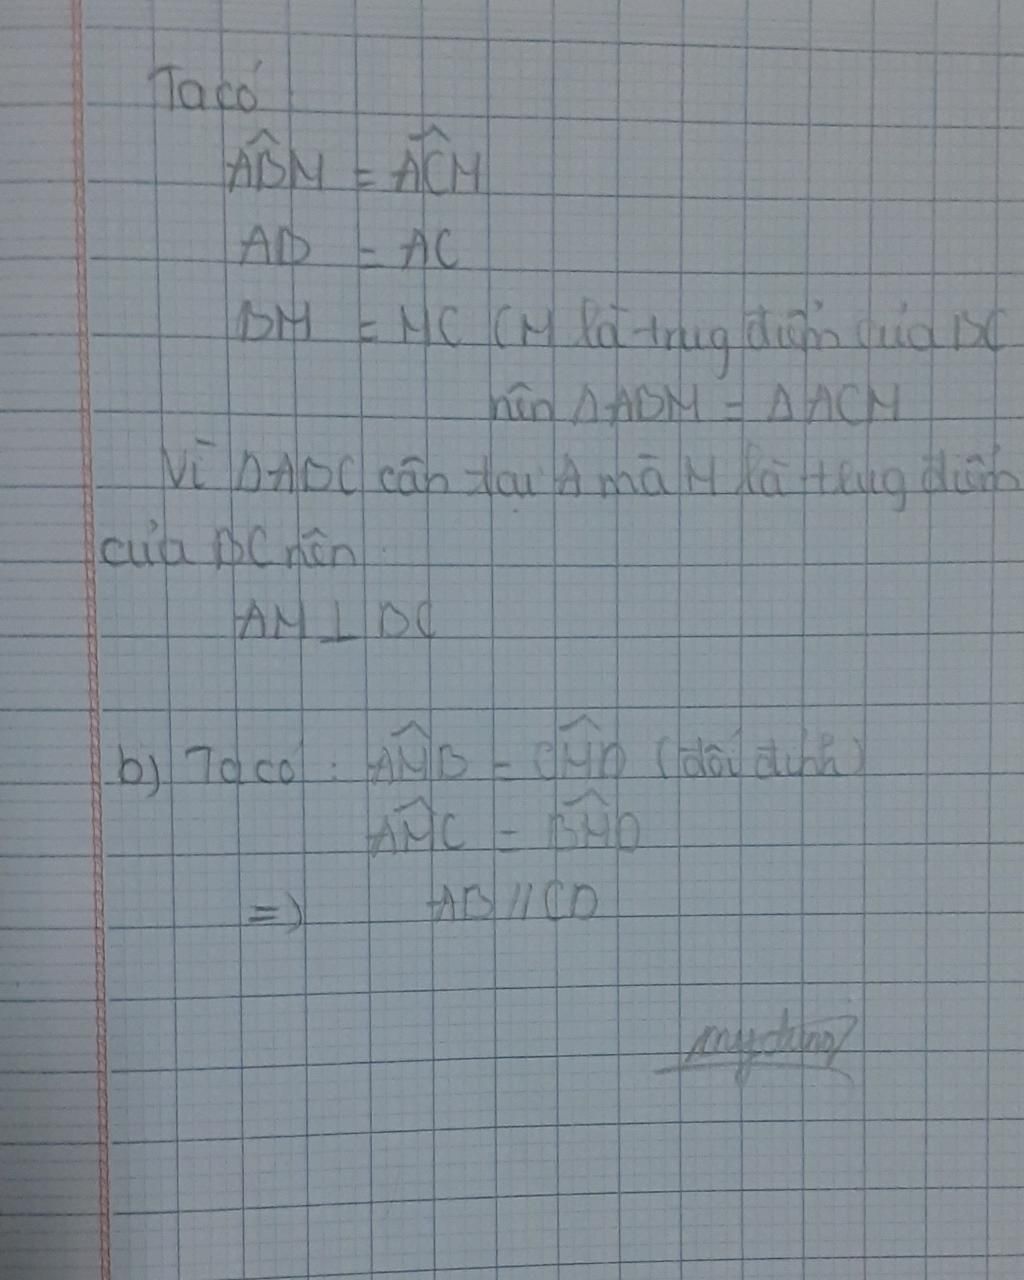 Ta có
ABM̂ = ACM̂
AB = AC
BM = MC (M là trug điểm của BC
nên ΔABM = ΔACM
Vì ΔABC cân tại A mà M là trug điểm
của BC nên
AM ⊥ BC
b) Ta có : AM̂B = CM̂D (đối đỉnh)
AM̂C = BM̂D
=> AB // CD